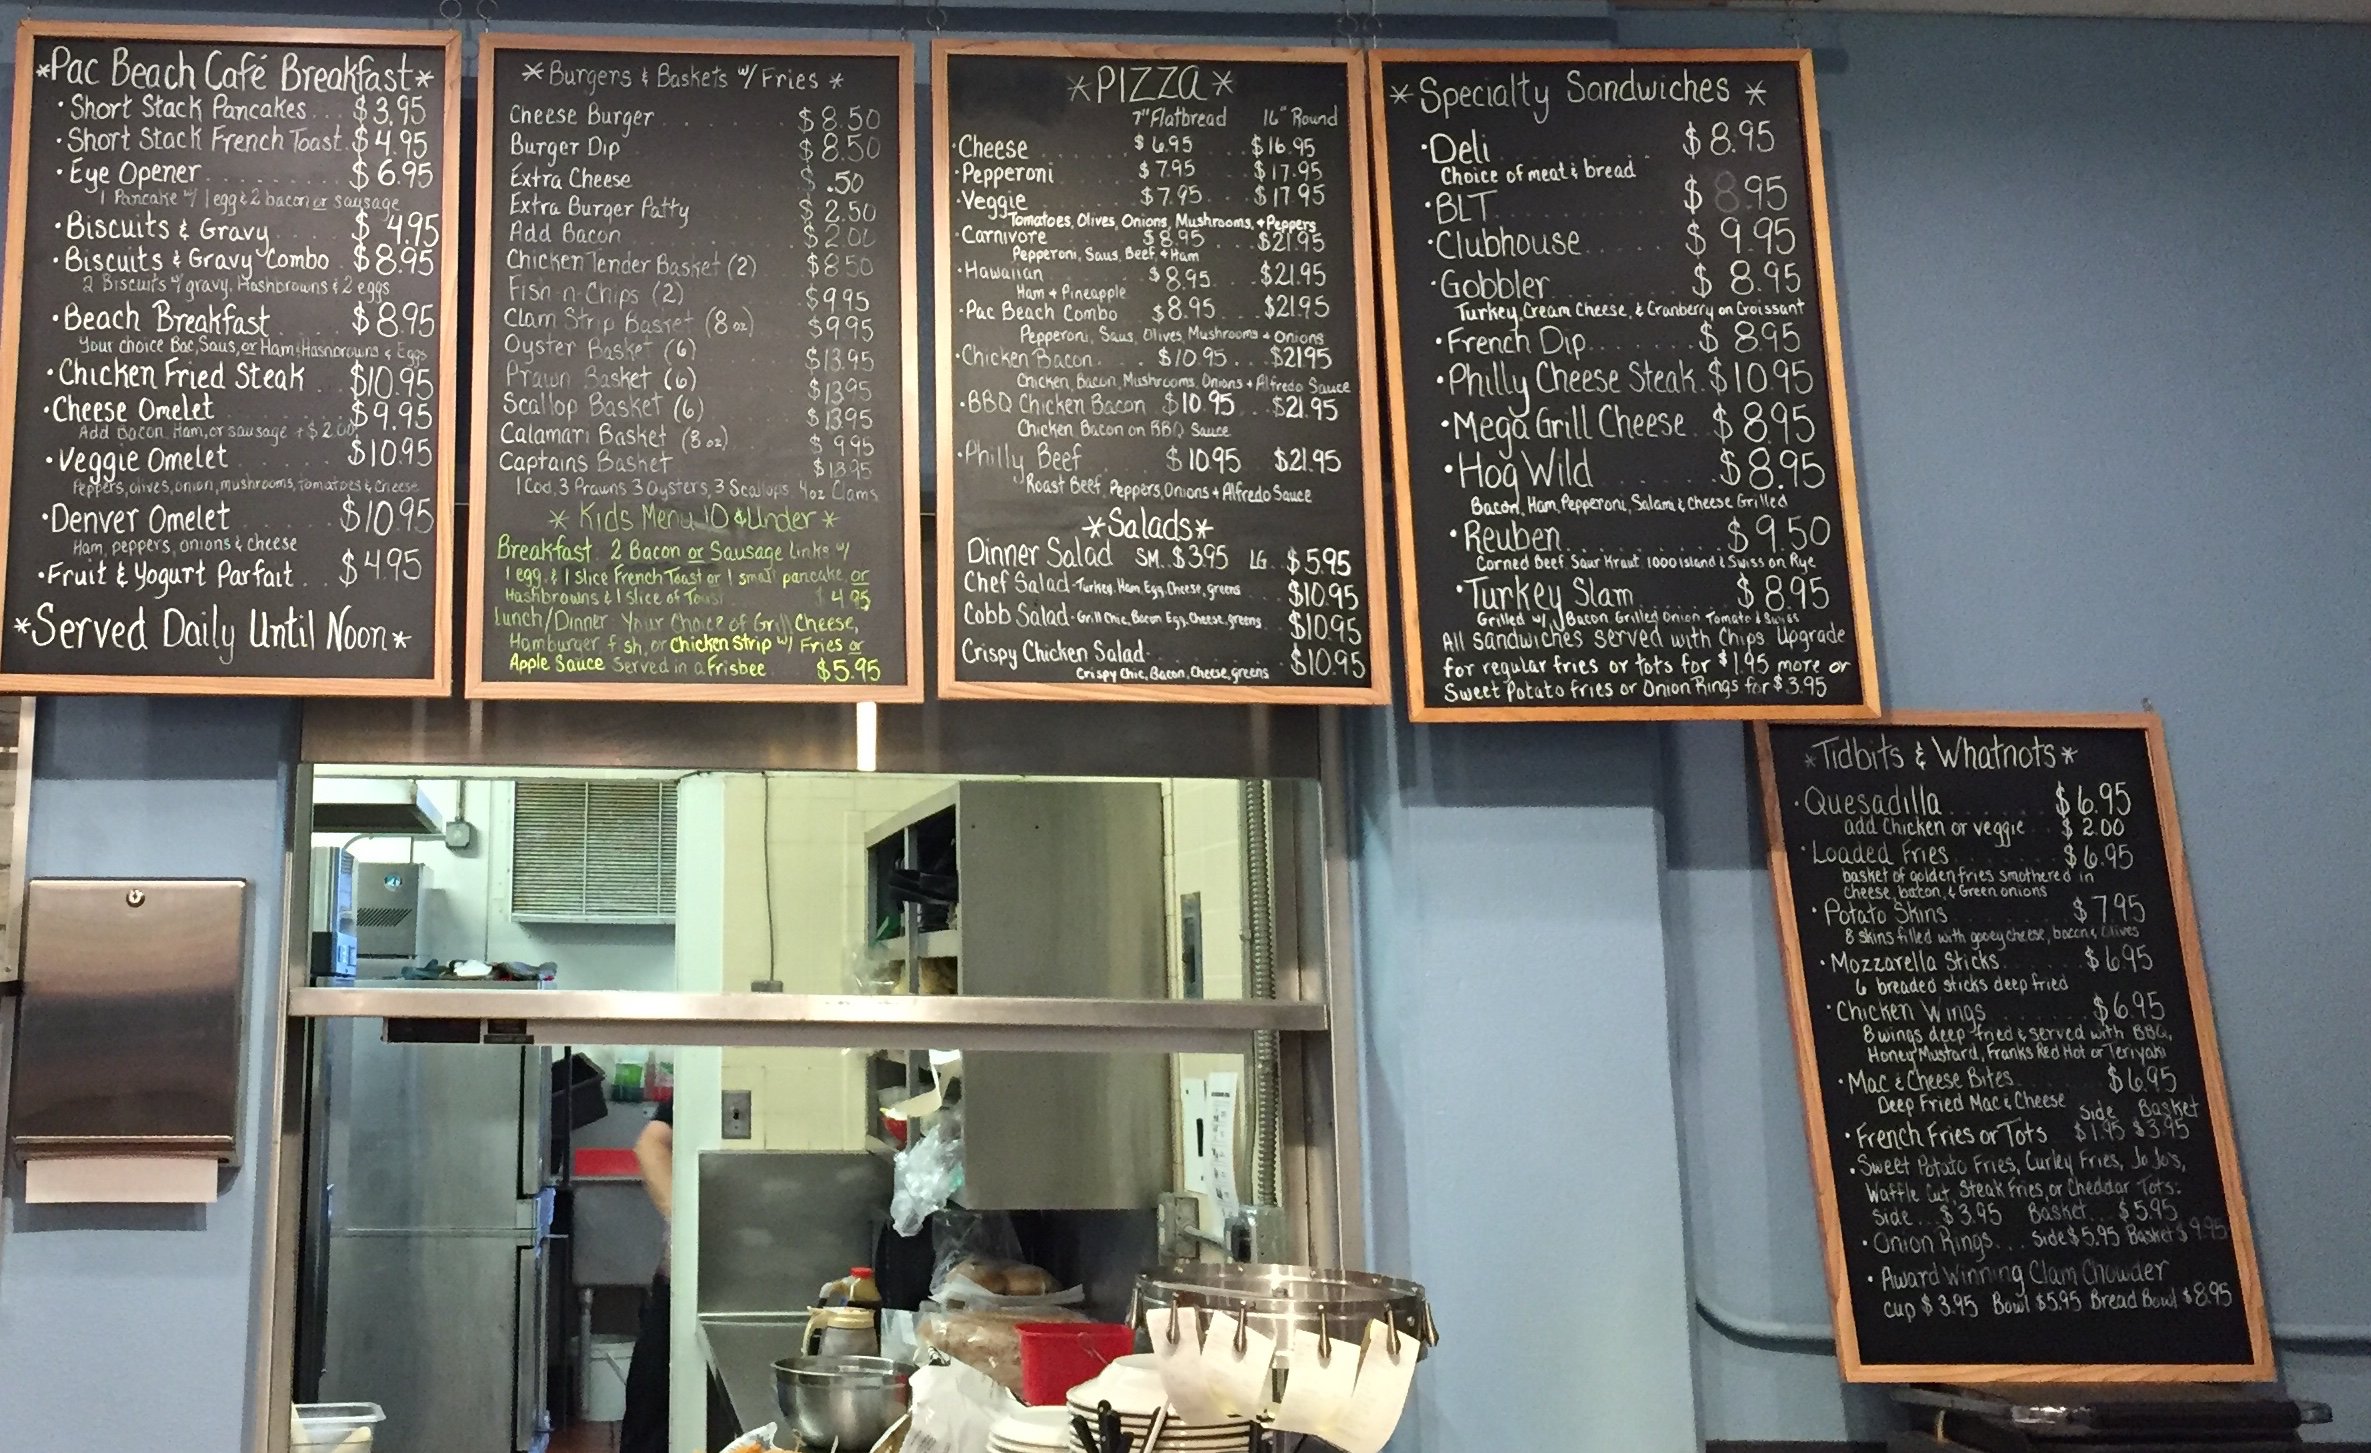 *Pac Beach Café Breakfast*
·Short Stack Pancakes... $3.95
·Short Stack French Toast. $4.95
·Eye Opener......... $6.95
1 Pancake w/ 1 egg & 2 bacon or sausage
·Biscuits & Gravy.... $4.95
·Biscuits & Gravy Combo. $8.95
2 Biscuits w/ gravy, Hashbrowns & 2 eggs
·Beach Breakfast..... $8.95
Your choice Bac, Saus, or Ham, Hashbrowns & Eggs
·Chicken Fried Steak.. $10.95
·Cheese Omelet....... $9.95
Add Bacon, Ham, or sausage + $2.00
·Veggie Omelet....... $10.95
Peppers, olives, onion, mushrooms, tomatoes & cheese
·Denver Omelet...... $10.95
Ham, peppers, onions & cheese
·Fruit & Yogurt Parfait... $4.95
*Served Daily Until Noon*
*Burgers & Baskets w/ Fries*
Cheese Burger........ $8.50
Burger Dip........ $8.50
Extra Cheese........ $.50
Extra Burger Patty..... $2.50
Add Bacon........ $2.00
Chicken Tender Basket (2).. $8.50
Fish-n-Chips (2)...... $9.95
Clam Strip Basket (8 oz)... $9.95
Oyster Basket (6)...... $13.95
Prawn Basket (6)...... $13.95
Scallop Basket (6)..... $13.95
Calamari Basket (8 oz).... $9.95
Captains Basket....... $18.95
1 Cod, 3 Prawns 3 Oysters, 3 Scallops, 4oz Clams
* Kids Menu 10 & Under *
Breakfast. 2 Bacon or Sausage Links w/
1 egg & 1 slice French Toast or 1 small pancake, or
Hashbrowns & 1 slice of Toast $4.95
Lunch/Dinner Your Choice of Grill Cheese,
Hamburger, fish, or Chicken Strip w/ Fries or
Apple Sauce Served in a Frisbee $5.95
*PIZZA*
7" Flatbread 16" Round
·Cheese........ $6.95.... $16.95
·Pepperoni....... $7.95.... $17.95
·Veggie........ $7.95.... $17.95
Tomatoes, Olives, Onions, Mushrooms, + Peppers
·Carnivore....... $8.95.... $21.95
Pepperoni, Saus, Beef, + Ham
·Hawaiian....... $8.95... $21.95
Ham + Pineapple
·Pac Beach Combo.. $8.95... $21.95
Pepperoni, Saus, Olives, Mushrooms + Onions
·Chicken Bacon.... $10.95... $21.95
Chicken, Bacon, Mushrooms, Onions + Alfredo Sauce
·BBQ Chicken Bacon $10.95... $21.95
Chicken, Bacon on BBQ Sauce
·Philly Beef..... $10.95 $21.95
Roast Beef, Peppers, Onions + Alfredo Sauce
*Salads*
Dinner Salad SM. $3.95 LG.. $5.95
Chef Salad-Turkey, Ham, Egg, Cheese, greens $10.95
Cobb Salad-Grill Chic, Bacon Egg, Cheese, greens $10.95
Crispy Chicken Salad........ $10.95
Crispy Chic, Bacon, Cheese, greens
*Specialty Sandwiches*
·Deli......... $8.95
Choice of meat & bread
·BLT......... $8.95
·Clubhouse....... $9.95
·Gobbler........ $8.95
Turkey, Cream Cheese, & Cranberry on Croissant
·French Dip....... $8.95
·Philly Cheese Steak. $10.95
·Mega Grill Cheese.. $8.95
·Hog Wild....... $8.95
Bacon, Ham, Pepperoni, Salami & Cheese Grilled
·Reuben........ $9.50
Corned Beef Saur Kraut 1000 Island & Swiss on Rye
·Turkey Slam...... $8.95
Grilled w/ Bacon Grilled Onion Tomato & Swiss
All sandwiches served with Chips Upgrade
for regular fries or tots for $1.95 more or
Sweet Potato fries or Onion Rings for $3.95
*Tidbits & Whatnots*
·Quesadilla....... $6.95
add Chicken or veggie.. $2.00
·Loaded Fries....... $6.95
basket of golden fries smothered in
cheese, bacon, & Green onions
·Potato Skins....... $7.95
8 skins filled with gooey cheese, bacon & olives
·Mozzarella Sticks..... $6.95
6 breaded sticks deep fried
·Chicken Wings...... $6.95
8 wings deep fried & served with BBQ,
Honey Mustard, Franks Red Hot or Teriyaki
·Mac & Cheese Bites..... $6.95
Deep Fried Mac & Cheese
Side Basket
·French Fries or Tots $1.95 $3.95
·Sweet Potato Fries, Curley Fries, Jo Jo's,
Waffle Cut, Steak Fries, or Cheddar Tots:
Side... $3.95 Basket... $5.95
·Onion Rings... Side $5.95 Basket $9.95
·Award Winning Clam Chowder
Cup $3.95 Bowl $5.95 Bread Bowl $8.95